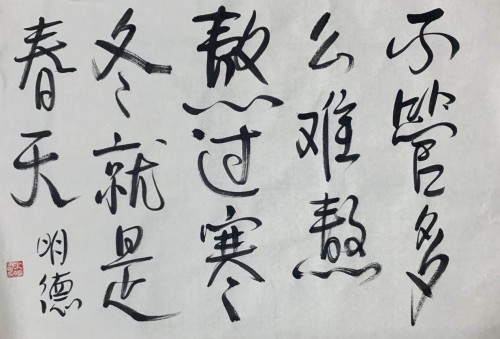 不管多
么难熬
熬过寒
冬就是
春天
明德